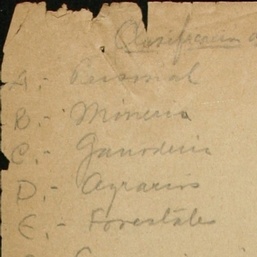 Clasificacion
A.- Personal
B.- Mineria
C.- Ganaderia
D.- Agrarios
E.- Forestales